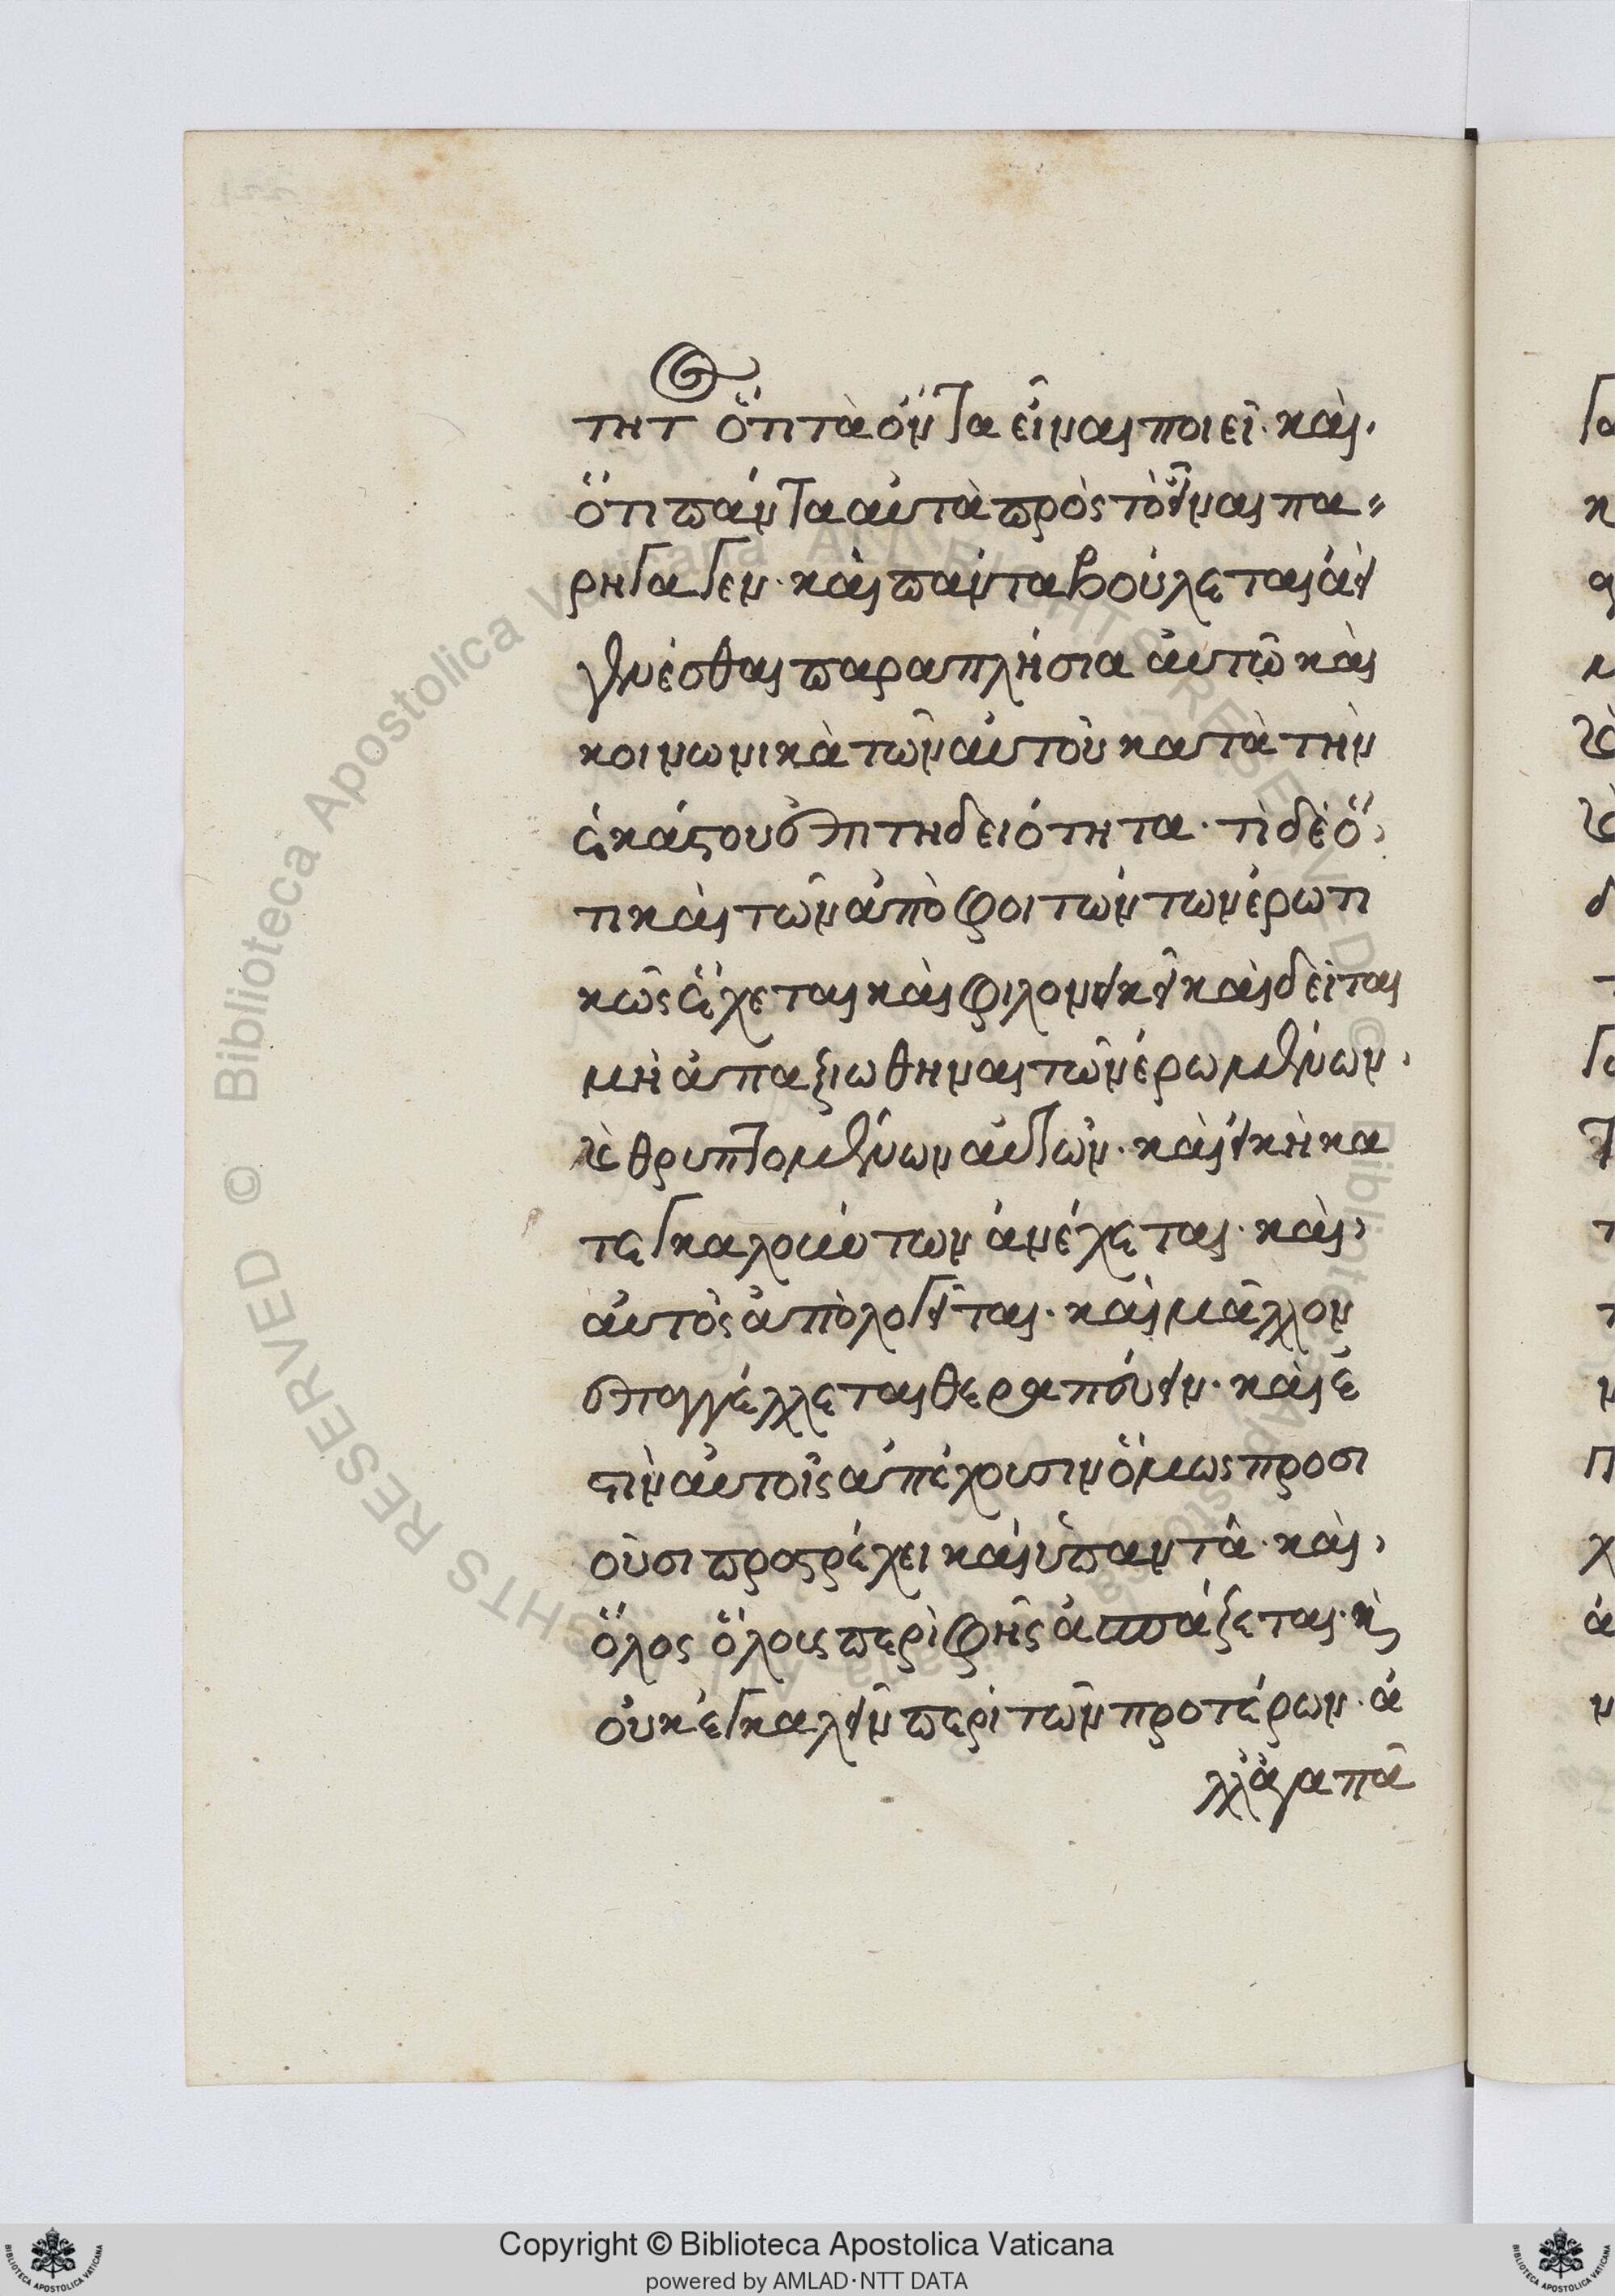 τητ ὅτι τὰ ὄντα εἶναι ποιεῖ· καὶ
ὅτι πάντα αὐτὰ πρὸς τὸ εἶναι πα
ρήγαγεν· καὶ πάντα βούλεται ἀεὶ
γενέσθαι παραπλήσια αὐτῶ καὶ
κοινωνικὰ τῶν αὐτοῦ κατὰ τὴν
ἑκάστου ἐπιτηδειότητα· τί δὲ ὅ
τι καὶ τῶν ἀποφοιτώντων ἐρωτι
κῶς ἔχεται καὶ φιλονεικεῖ καὶ δεῖται
μὴ ἀπαξιωθῆναι τῶν ἐρωμένων
καὶ θρυπτομένων αὐτῶν· καὶ εἰκῆ κα
τεγκαλούντων ἀνέχεται· καὶ
αὐτὸς ἀπολογεῖται· καὶ μᾶλλον
ἐπαγγέλλεται θεραπεύειν· καὶ ἔ
στιν αὐτοῖς ἀπέχουσιν ὅμως προσι
οῦσι προστρέχει καὶ ὑπαντᾶ· καὶ
ὅλος ὅλους περιφῢς ἀσπάζεται· κὶ
οὐκ ἐγκαλεῖν περὶ τῶν προτέρων· ἀ
λλ' ἀγαπᾶ
Copyright © Biblioteca Apostolica Vaticana
powered by AMLAD·NTT DATA